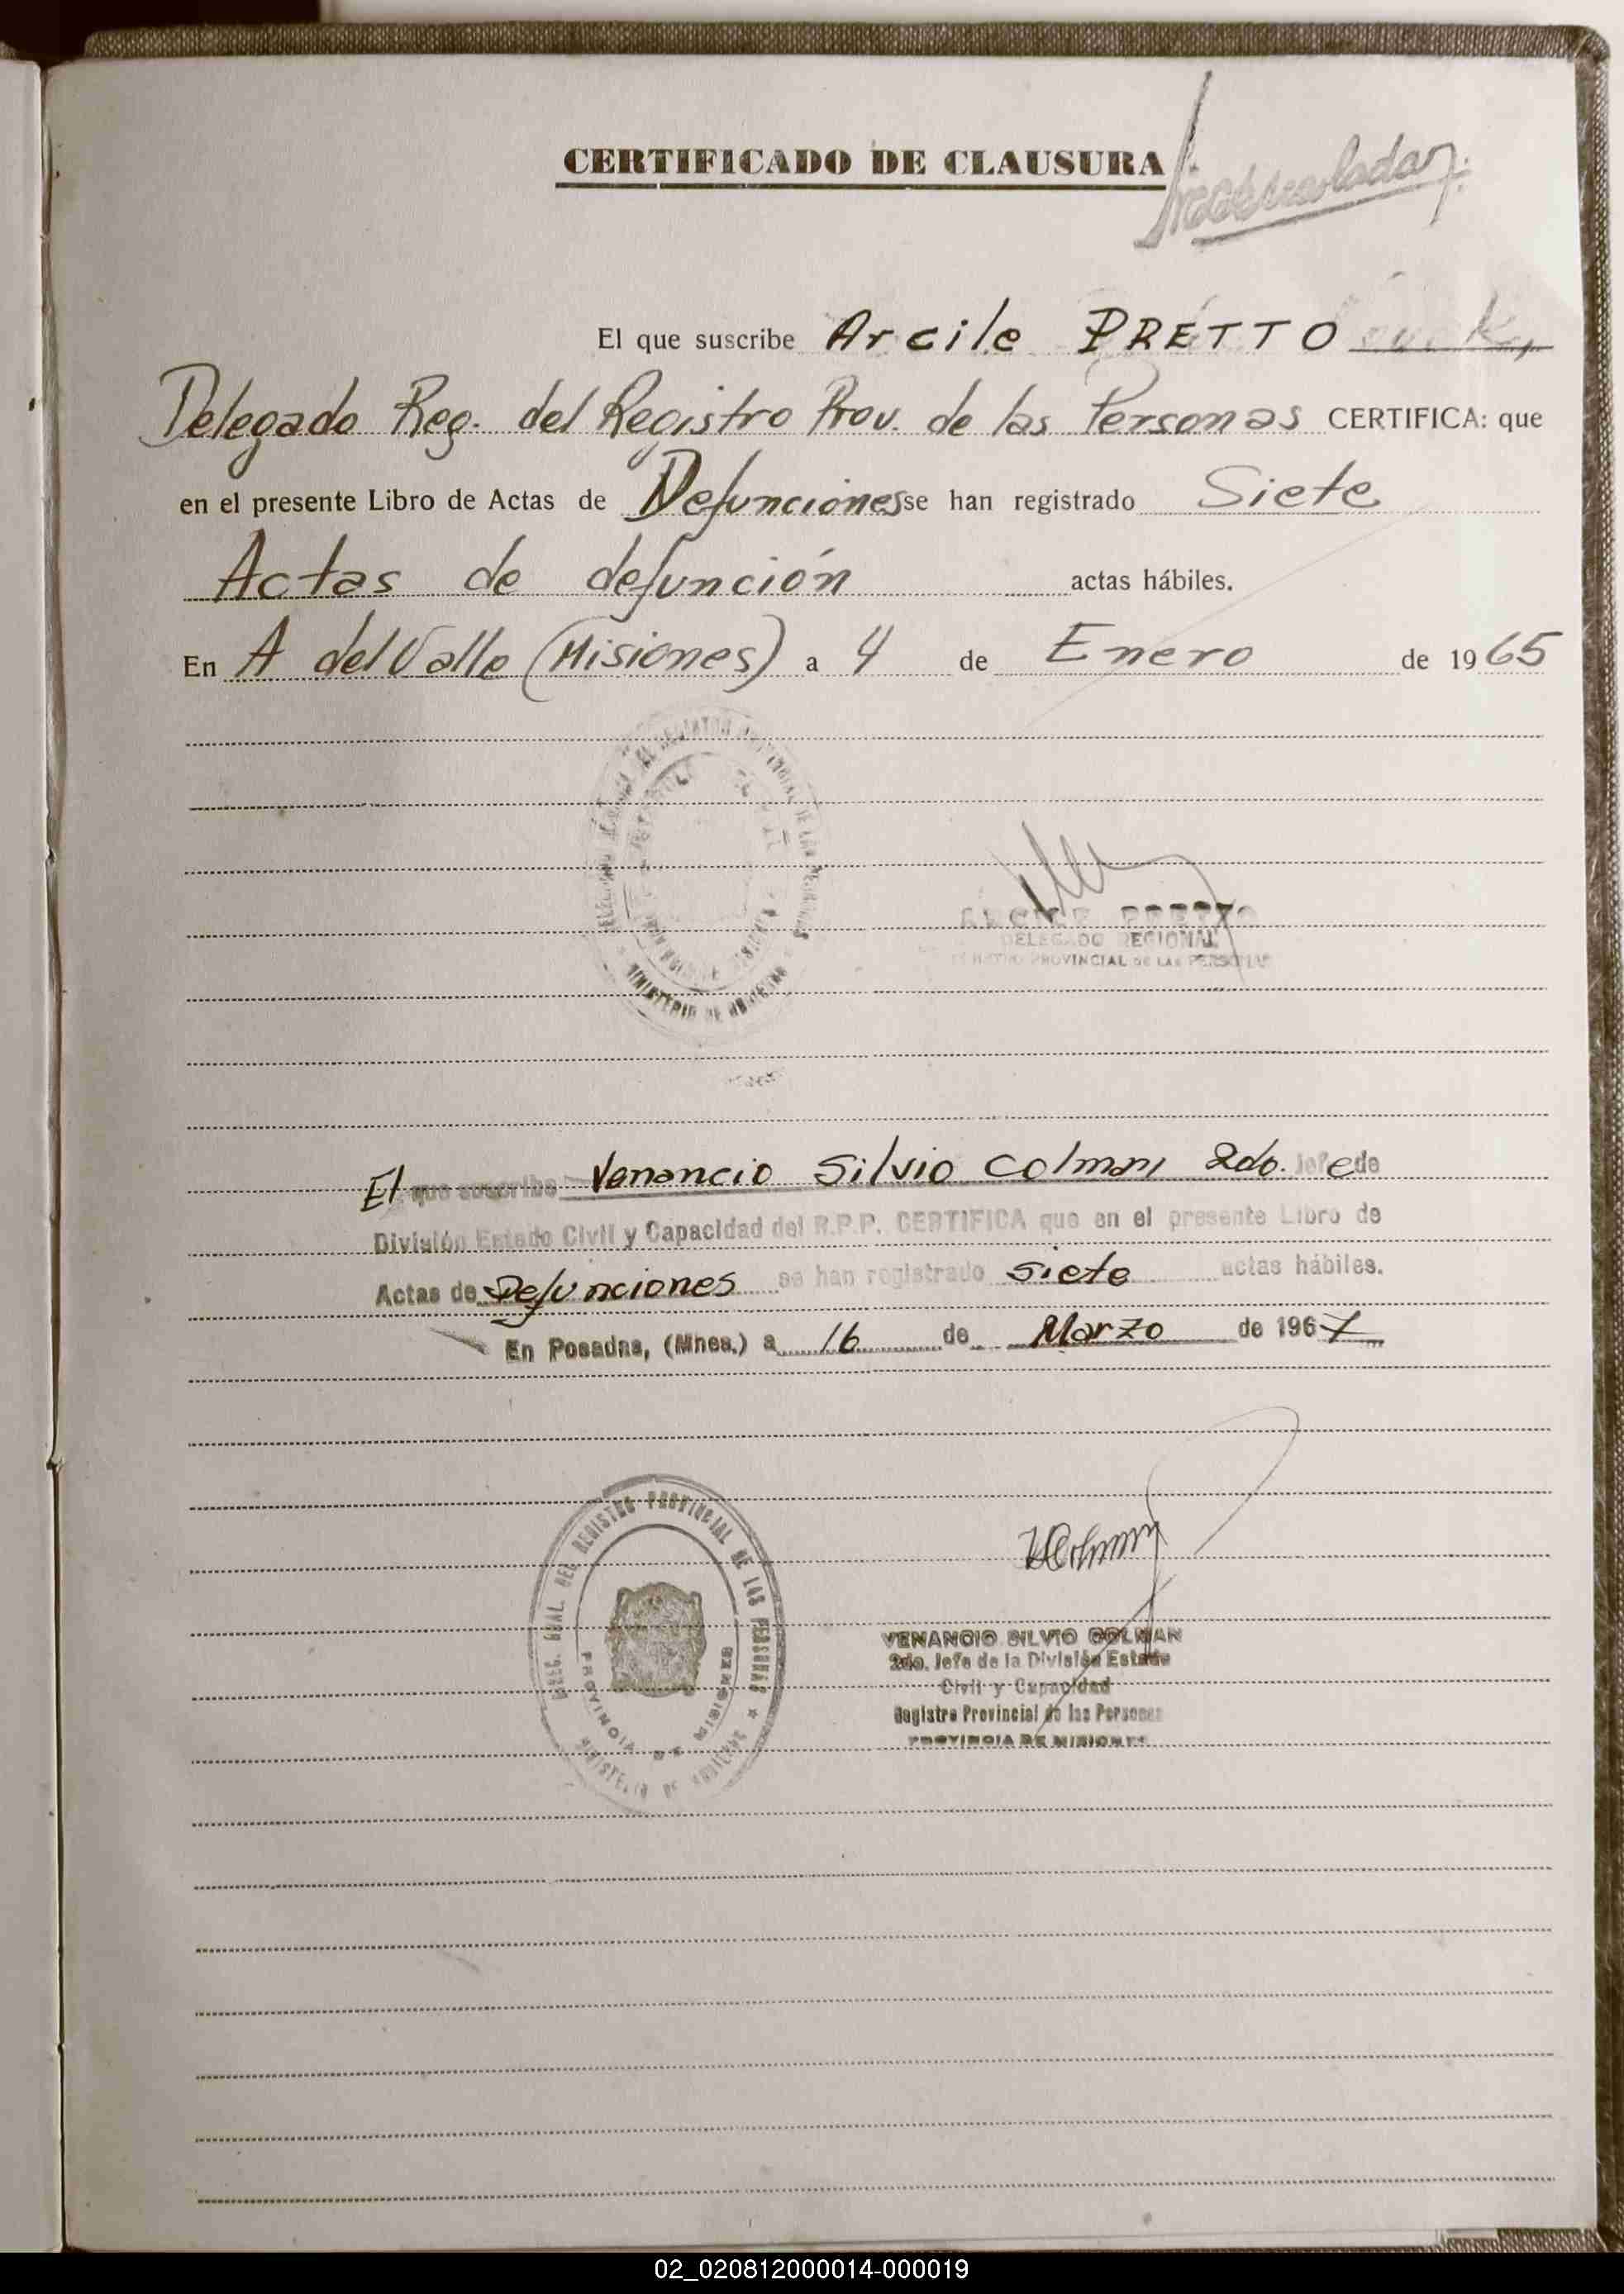 CERTIFICADO DE CLAUSURA
El que suscribe Arcile PRETTO
Delegado Reg. del Registro Prov. de las Personas CERTIFICA: que
en el presente Libro de Actas de Defunciones se han registrado Siete
Actas de defunción actas hábiles.
En A del Valle (Misiones) a 4 de Enero de 1965
ARCILE PRETTO
DELEGADO REGIONAL
PROVINCIAL DE LAS PERSONAS
El que suscribe Venancio Silvio Colman 2do. Jefe de
División Estado Civil y Capacidad del R.P.P. CERTIFICA que en el presente Libro de
Actas de Defunciones se han registrado siete actas hábiles.
En Posadas, (Mnes.) a 16 de Marzo de 1967
DIREC. GRAL. DEL REGISTRO PROVINCIAL DE LAS PERSONAS
PROVINCIA DE MISIONES
MINISTERIO DE
VColman
VENANCIO SILVIO COLMAN
2do. Jefe de la División Estado
Civil y Capacidad
Registro Provincial de las Personas
PROVINCIA DE MISIONES
02_020812000014-000019